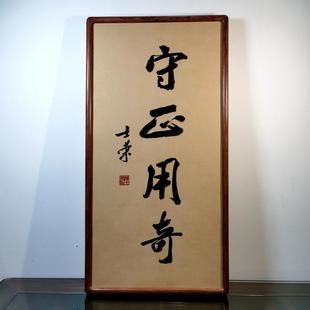 守正用奇
士荣